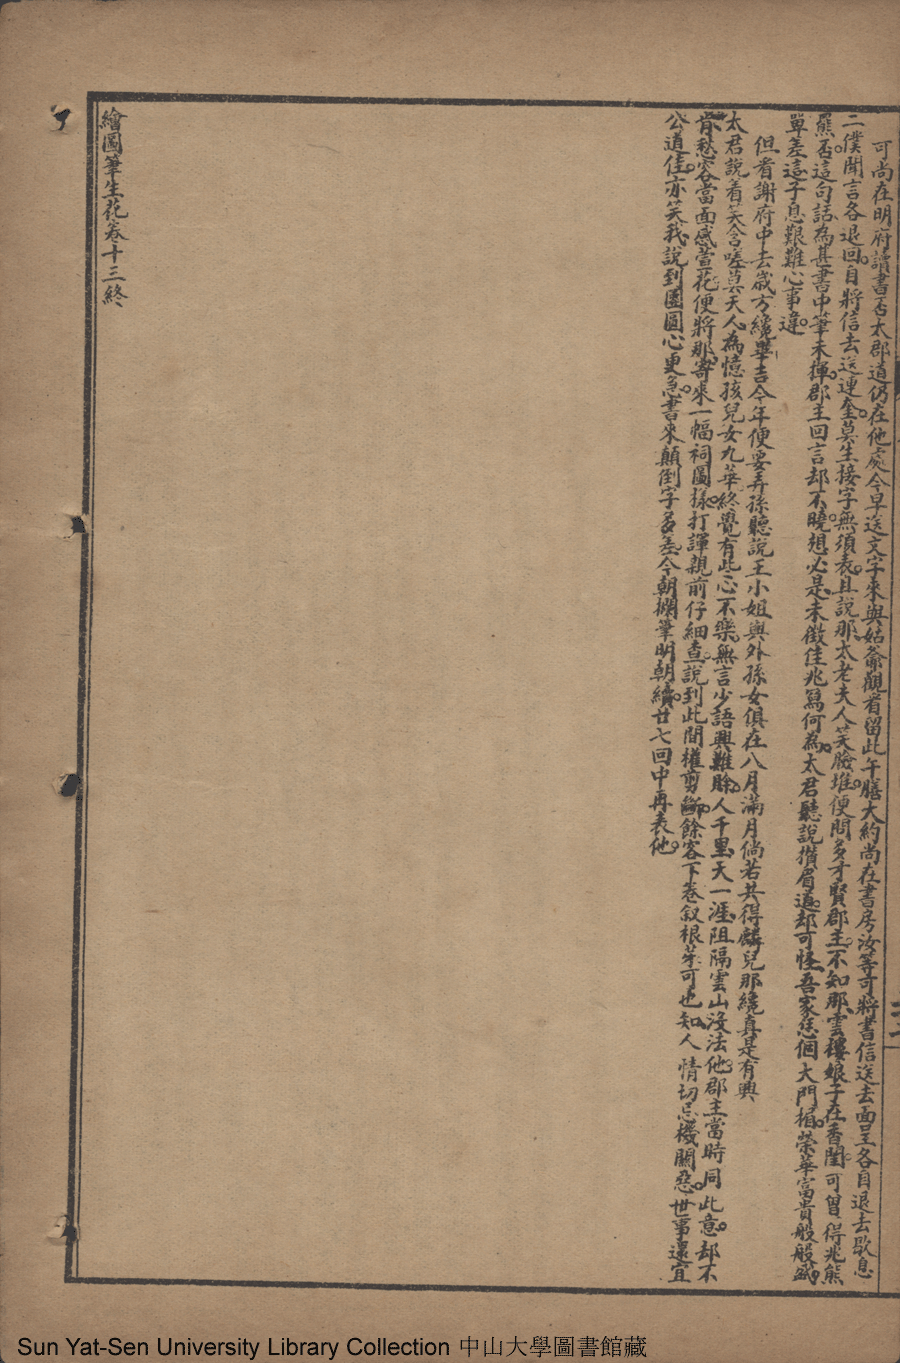 可尚在明府讀書否太郡道仍在他處今早送文字來與姑爺觀看留此午膳大約尚在書房汝等可將書信送去面呈各自退去歇息
二僕聞言各退回自將信去送連奎莫生接字無須表且說那太老夫人笑臉堆便問多才賢郡主不知那雲樓娘子在香閨可曾得兆熊
羆否這句話為甚書中筆未揮郡主回言却不曉想必是未徵佳兆寫何為太君聽說攢眉道却可怪吾家恁個大門楣榮華富貴般般盛
單差這子息艱難心事違
但看謝府中去歲方纔畢吉今年便要弄孫聽說王小姐與外孫女俱在八月滿月倘若共得麟兒那纔真是有興
太君說着笑含嗟莫天人為憶孩兒女九華終覺有些心不樂無言少語興難賒人千里天一涯阻隔雲山沒法他郡主當時同此意却不
肯愁容當面感萱花便將那寄來一幅祠圖樣打諢親前仔細查說到此間權剪斷餘容下卷叙根芽可也知人情切忌機關惡世事還宜
公道佳亦笑我說到團圓心更急書來顛倒字多差今朝擱筆明朝續廿七回中再表他
繪圖筆生花卷十三終
Sun Yat-Sen University Library Collection 中山大學圖書館藏